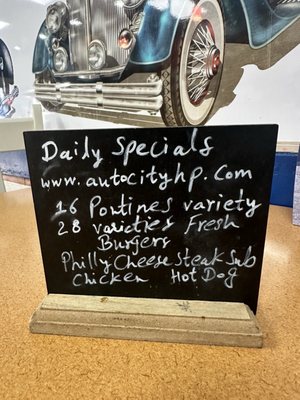 Daily Specials
www.autocityhp.com
16 Poutines variety
28 varieties Fresh
Burgers
Philly Cheese Steak Sub
Chicken Hot Dog